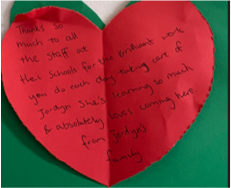 Thanks so
much to all
the staff at
Hei Schools for the brilliant work
you do each day taking care of
Jordyn She's learning so much
& absolutely loves coming here.
from Jordyn's
family